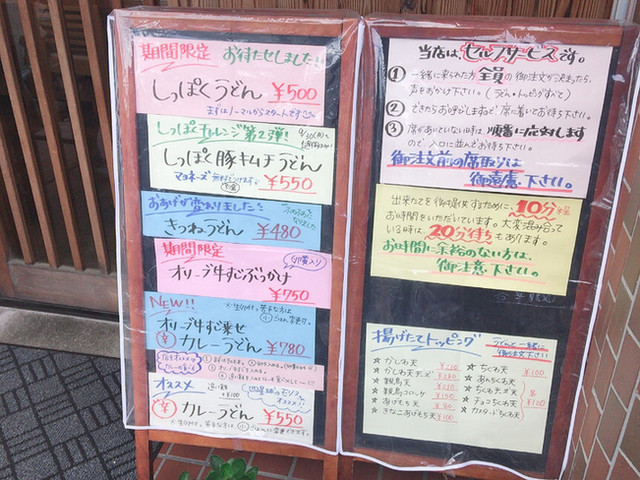 期間限定 お待たせしました!!
しっぽくうどん ¥500
まずはノーマルからスタートです
しっぽくチャレンジ第2弾!
しっぽく豚キムチうどん
マヨネーズ ¥550
おあげが変わりました
きつねうどん ¥480
期間限定
オリーブ牛すじぶっかけ
¥750
NEW!!
オリーブ牛すじ乗せ
カレーうどん ¥780
オススメ
カレーうどん ¥550
当店は、セルフサービスです。
① 一緒に来られた方全員の御注文が決まったら、
声をおかけ下さい。(うどん・トッピングすべて)
② できたらお呼びしますので席に着いてお待ち下さい。
③ 席があいていない時は、順番に応対します
ので、入口に並んでお待ち下さい。
御注文前の席取りは
御遠慮下さい。
出来たてを御提供するために、10分
お時間をいただいています。大変混み合って
いる時は、20分待ちもあります。
お時間に余裕のない方は、
御注意下さい。
揚げたてトッピング
うどんと一緒に
御注文下さい。
☆ かしわ天 ¥210
☆ かしわ天チーズ
☆ 半熟玉天
☆ 半熟コロッケ
☆ あげもち天
☆ きなこあげもち天 ¥100
☆ ちくわ天 ¥100
☆ あんちくわ天
☆ ちくわチーズ天
☆ チョコちくわ天
☆ カスタードちくわ天
各
¥100